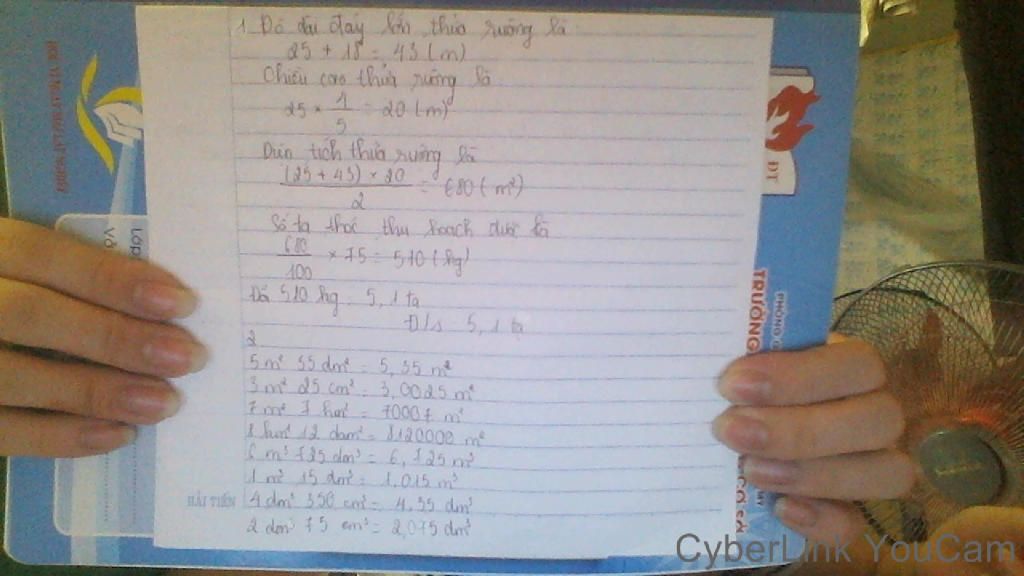 1. Độ dài đáy lớn thửa ruộng là:
25 + 18 = 43 (m)
Chiều cao thửa ruộng là
25 × 1/5 = 20 (m)
Diện tích thửa ruộng là
(25 + 43) × 20 / 2 = 680 (m²)
Số tạ thóc thu hoạch được là
680/100 × 75 = 510 (kg)
Đổi 510 kg = 5,1 tạ
Đ/s 5,1 tạ
2
5 m² 35 dm² = 5,35 m²
3 m² 25 cm² = 3,0025 m²
7 m² 7 hm² = 70007 m²
8 hm² 12 dam² = 8120000 m²
6 m³ 725 dm³ = 6,725 m³
1 m³ 15 dm³ = 1,015 m³
HẢI TIẾN
4 dm³ 350 cm³ = 4,35 dm³
2 dm³ 75 cm³ = 2,075 dm³
ĐT
PHÒNG
TRƯỜNG
CƠ SỞ
Lớp
Vở
CyberLink YouCam